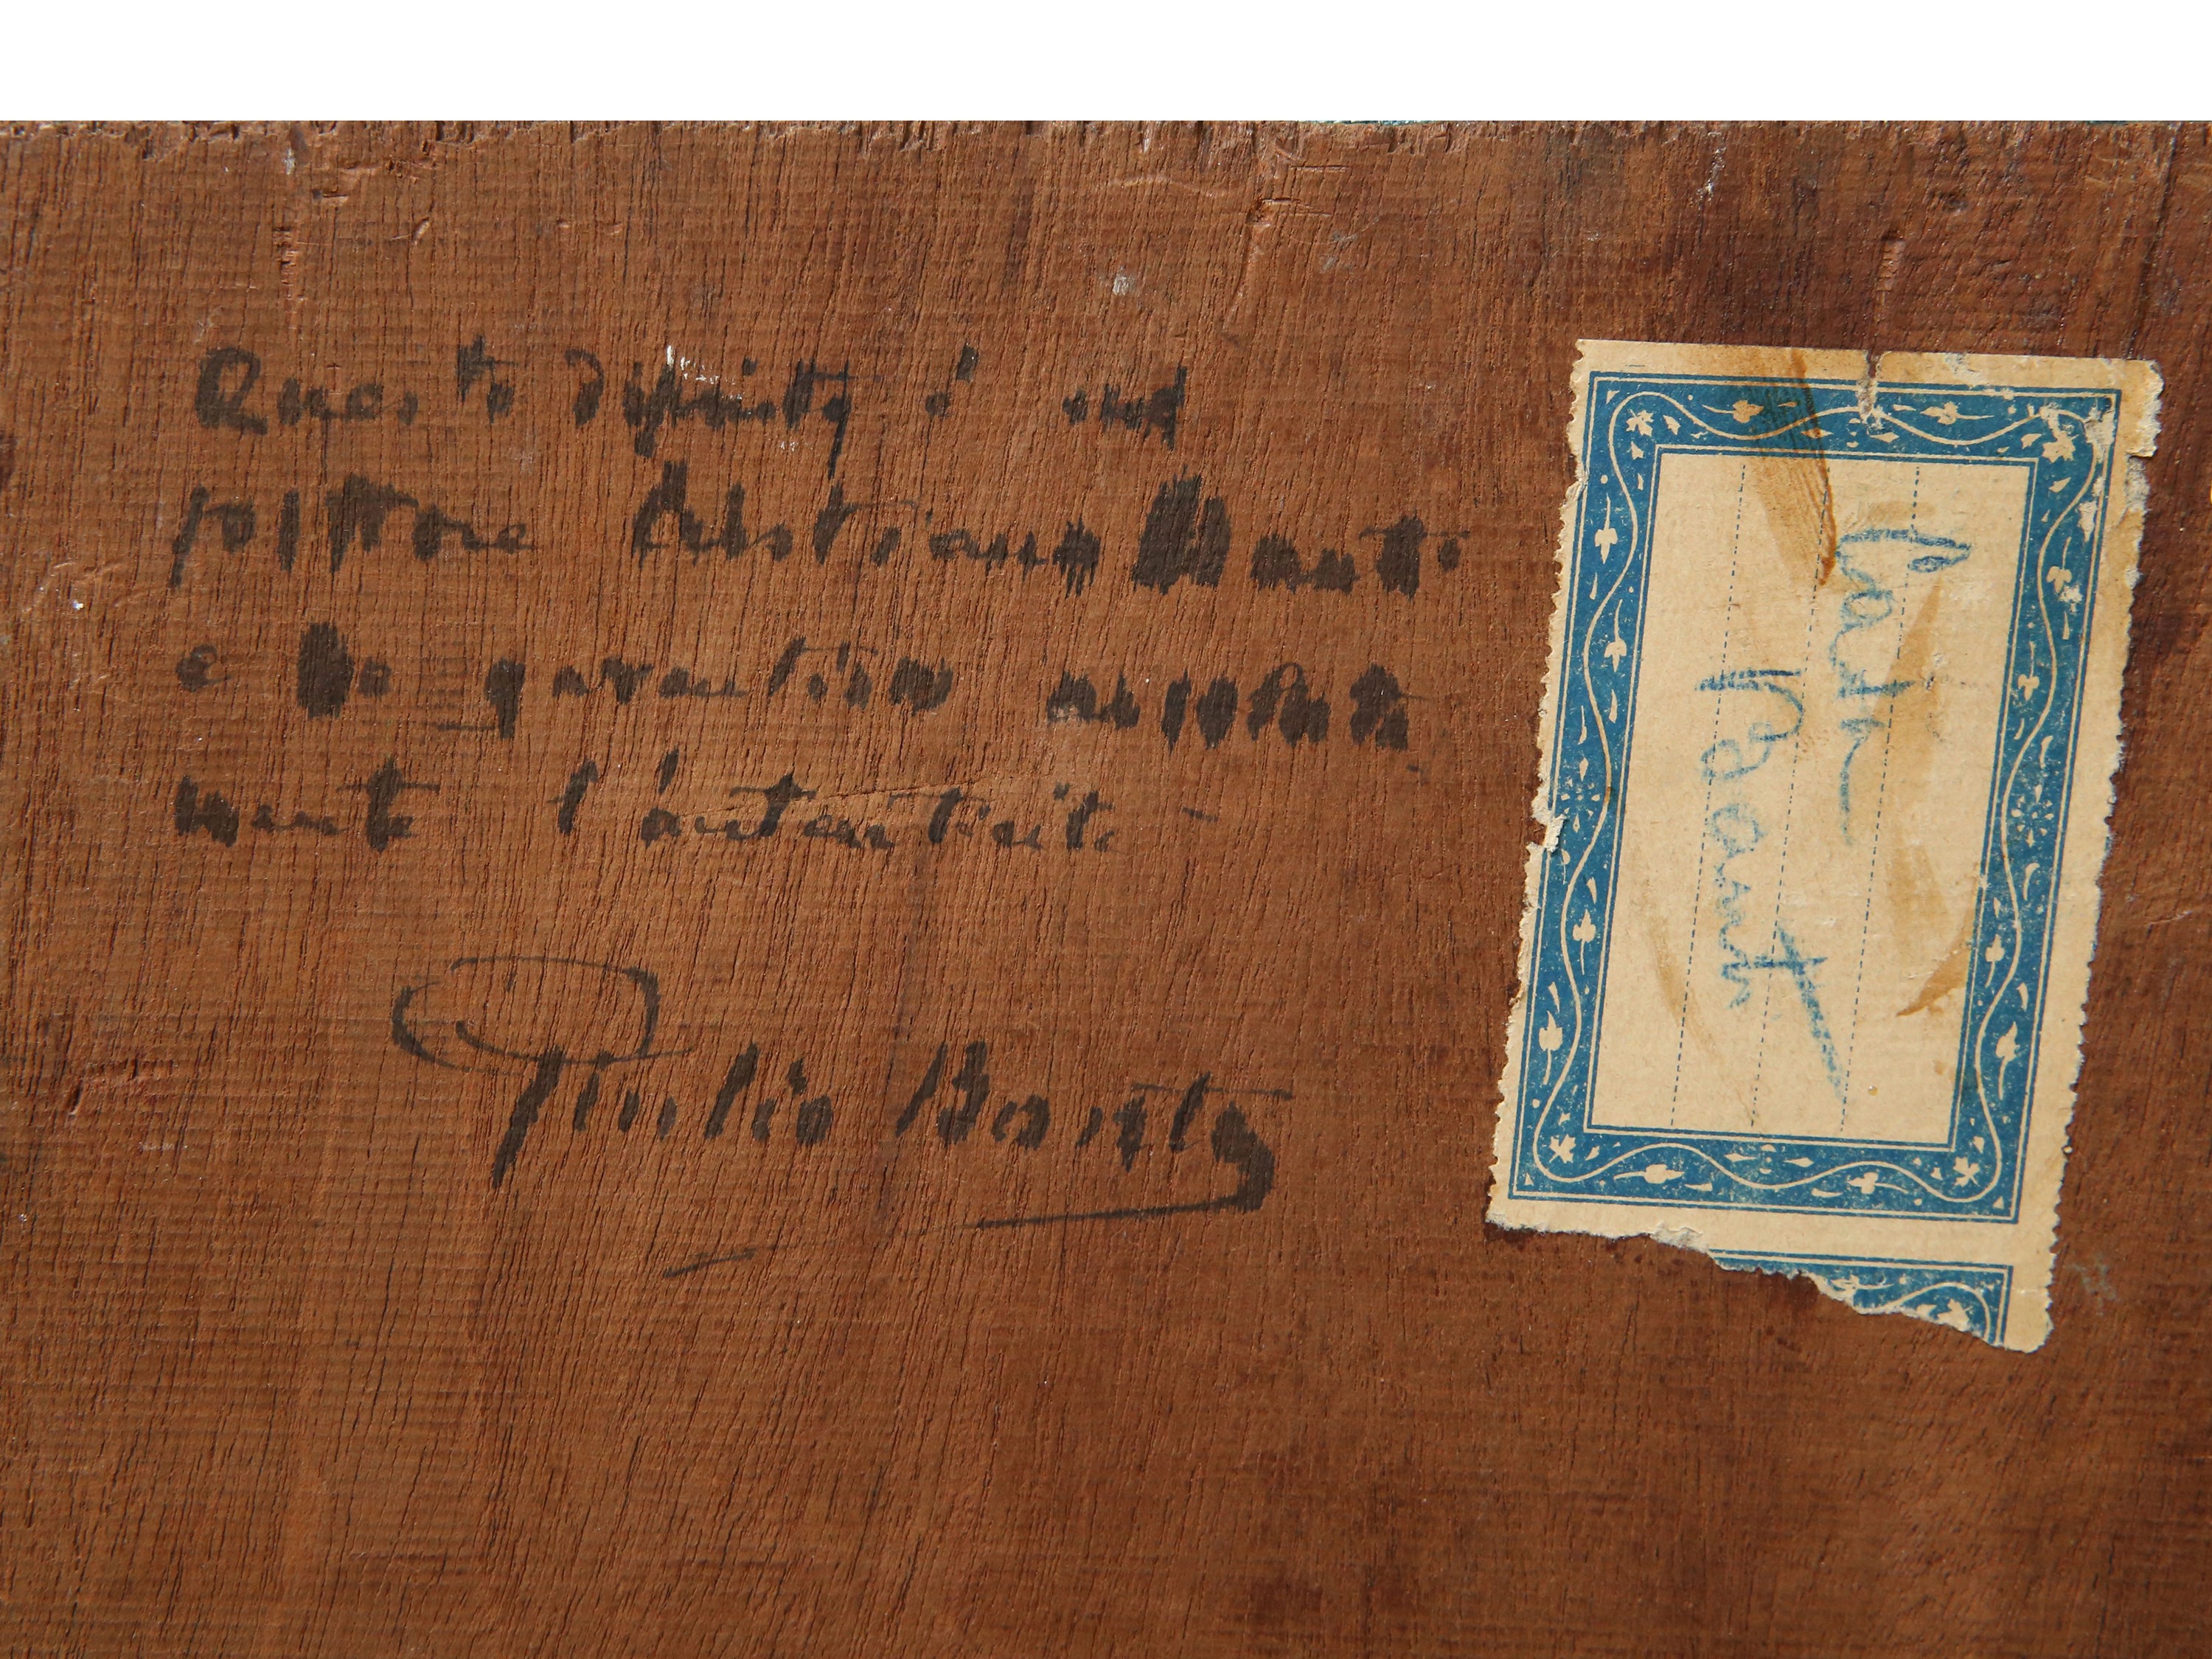 Questo dipinto è del
pittore Cristiano Banti
e ne garantisco assoluta
mente l'autenticità -
Giulio Banti
Banti